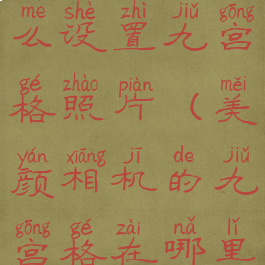 me shè zhì jiǔ gōng
么设置九宫
gé zhào piàn měi
格照片（美
yán xiāng jī de jiǔ
颜相机的九
gōng gé zài nǎ lǐ
宫格在哪里